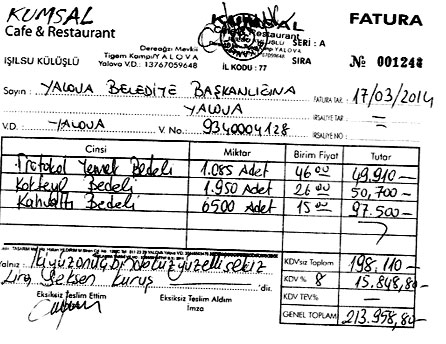 KUMSAL
Cafe & Restaurant
IŞILSU KÜLÜŞLÜ
Dereağzı Mevkii
Tigem Kampı/YALOVA
Yalova VD. 13767059648
KUMSAL
Restaurant
YALOVA
İL KODU : 77
SERİ : A
SIRA
FATURA
№ 001248
Sayın : YALOVA BELEDİYE BAŞKANLIĞINA
YALOVA
FATURA TAR. : 17/03/2014
İRSALİYE TAR. : —
V.D. : YALOVA V. No. 9340004128
İRSALİYE NO : —
Cinsi Miktar Birim Fiyat Tutar
Protokol Yemek Bedeli 1.085 Adet 46 00 49,910—
Kokteyl Bedeli 1.950 Adet 26 00 50,700—
Kahvaltı Bedeli 6500 Adet 15 00 97.500—
Yalnız : İkiyüzonüçbindokuzyüzellisekiz
Lira Seksen Kuruş 'dir.
Eksiksiz Teslim Ettim
Eksiksiz Teslim Aldım
İmza
KDVsiz Toplam 198,110—
KDV % 8 15,848,80—
KDV TEV% —
GENEL TOPLAM 213,958,80—